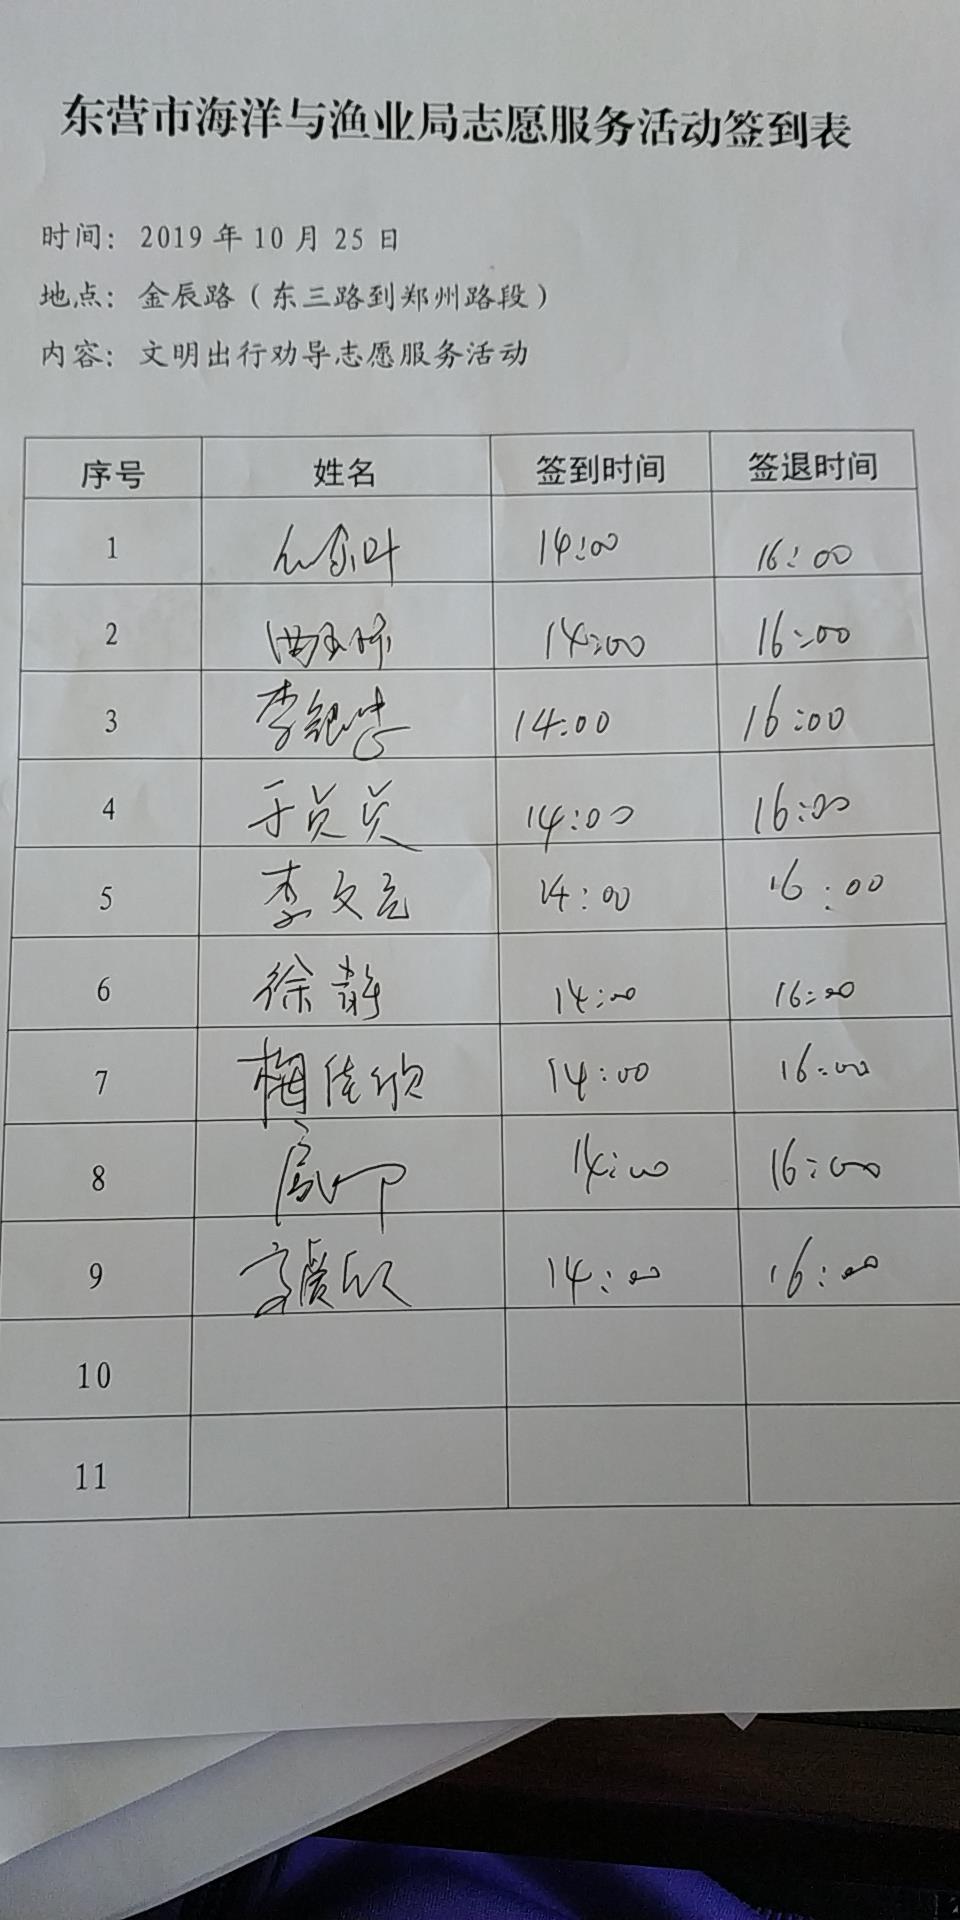 东营市海洋与渔业局志愿服务活动签到表
时间：2019 年 10 月 25 日
地点：金辰路（东三路到郑州路段）
内容：文明出行劝导志愿服务活动
序号 姓名 签到时间 签退时间
1 14:00 16:00
2 14:00 16:00
3 李银忠 14:00 16:00
4 于贞贞 14:00 16:00
5 李文亮 14:00 16:00
6 徐静 14:00 16:00
7 梅佳欣 14:00 16:00
8 14:00 16:00
9 14:00 16:00
10
11